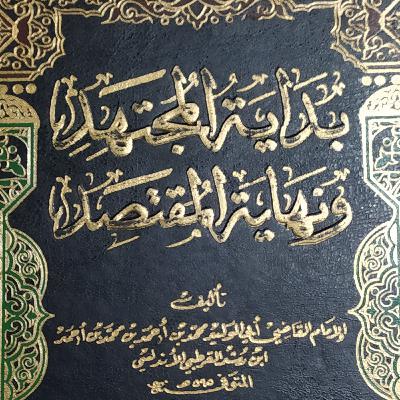 بداية المجتهد
ونهاية المقتصد
تأليف
الإمام القاضي أبي الوليد محمد بن أحمد بن محمد بن أحمد
ابن رشد القرطبي الأندلسي
المتوفى ٥٩٥ هـ